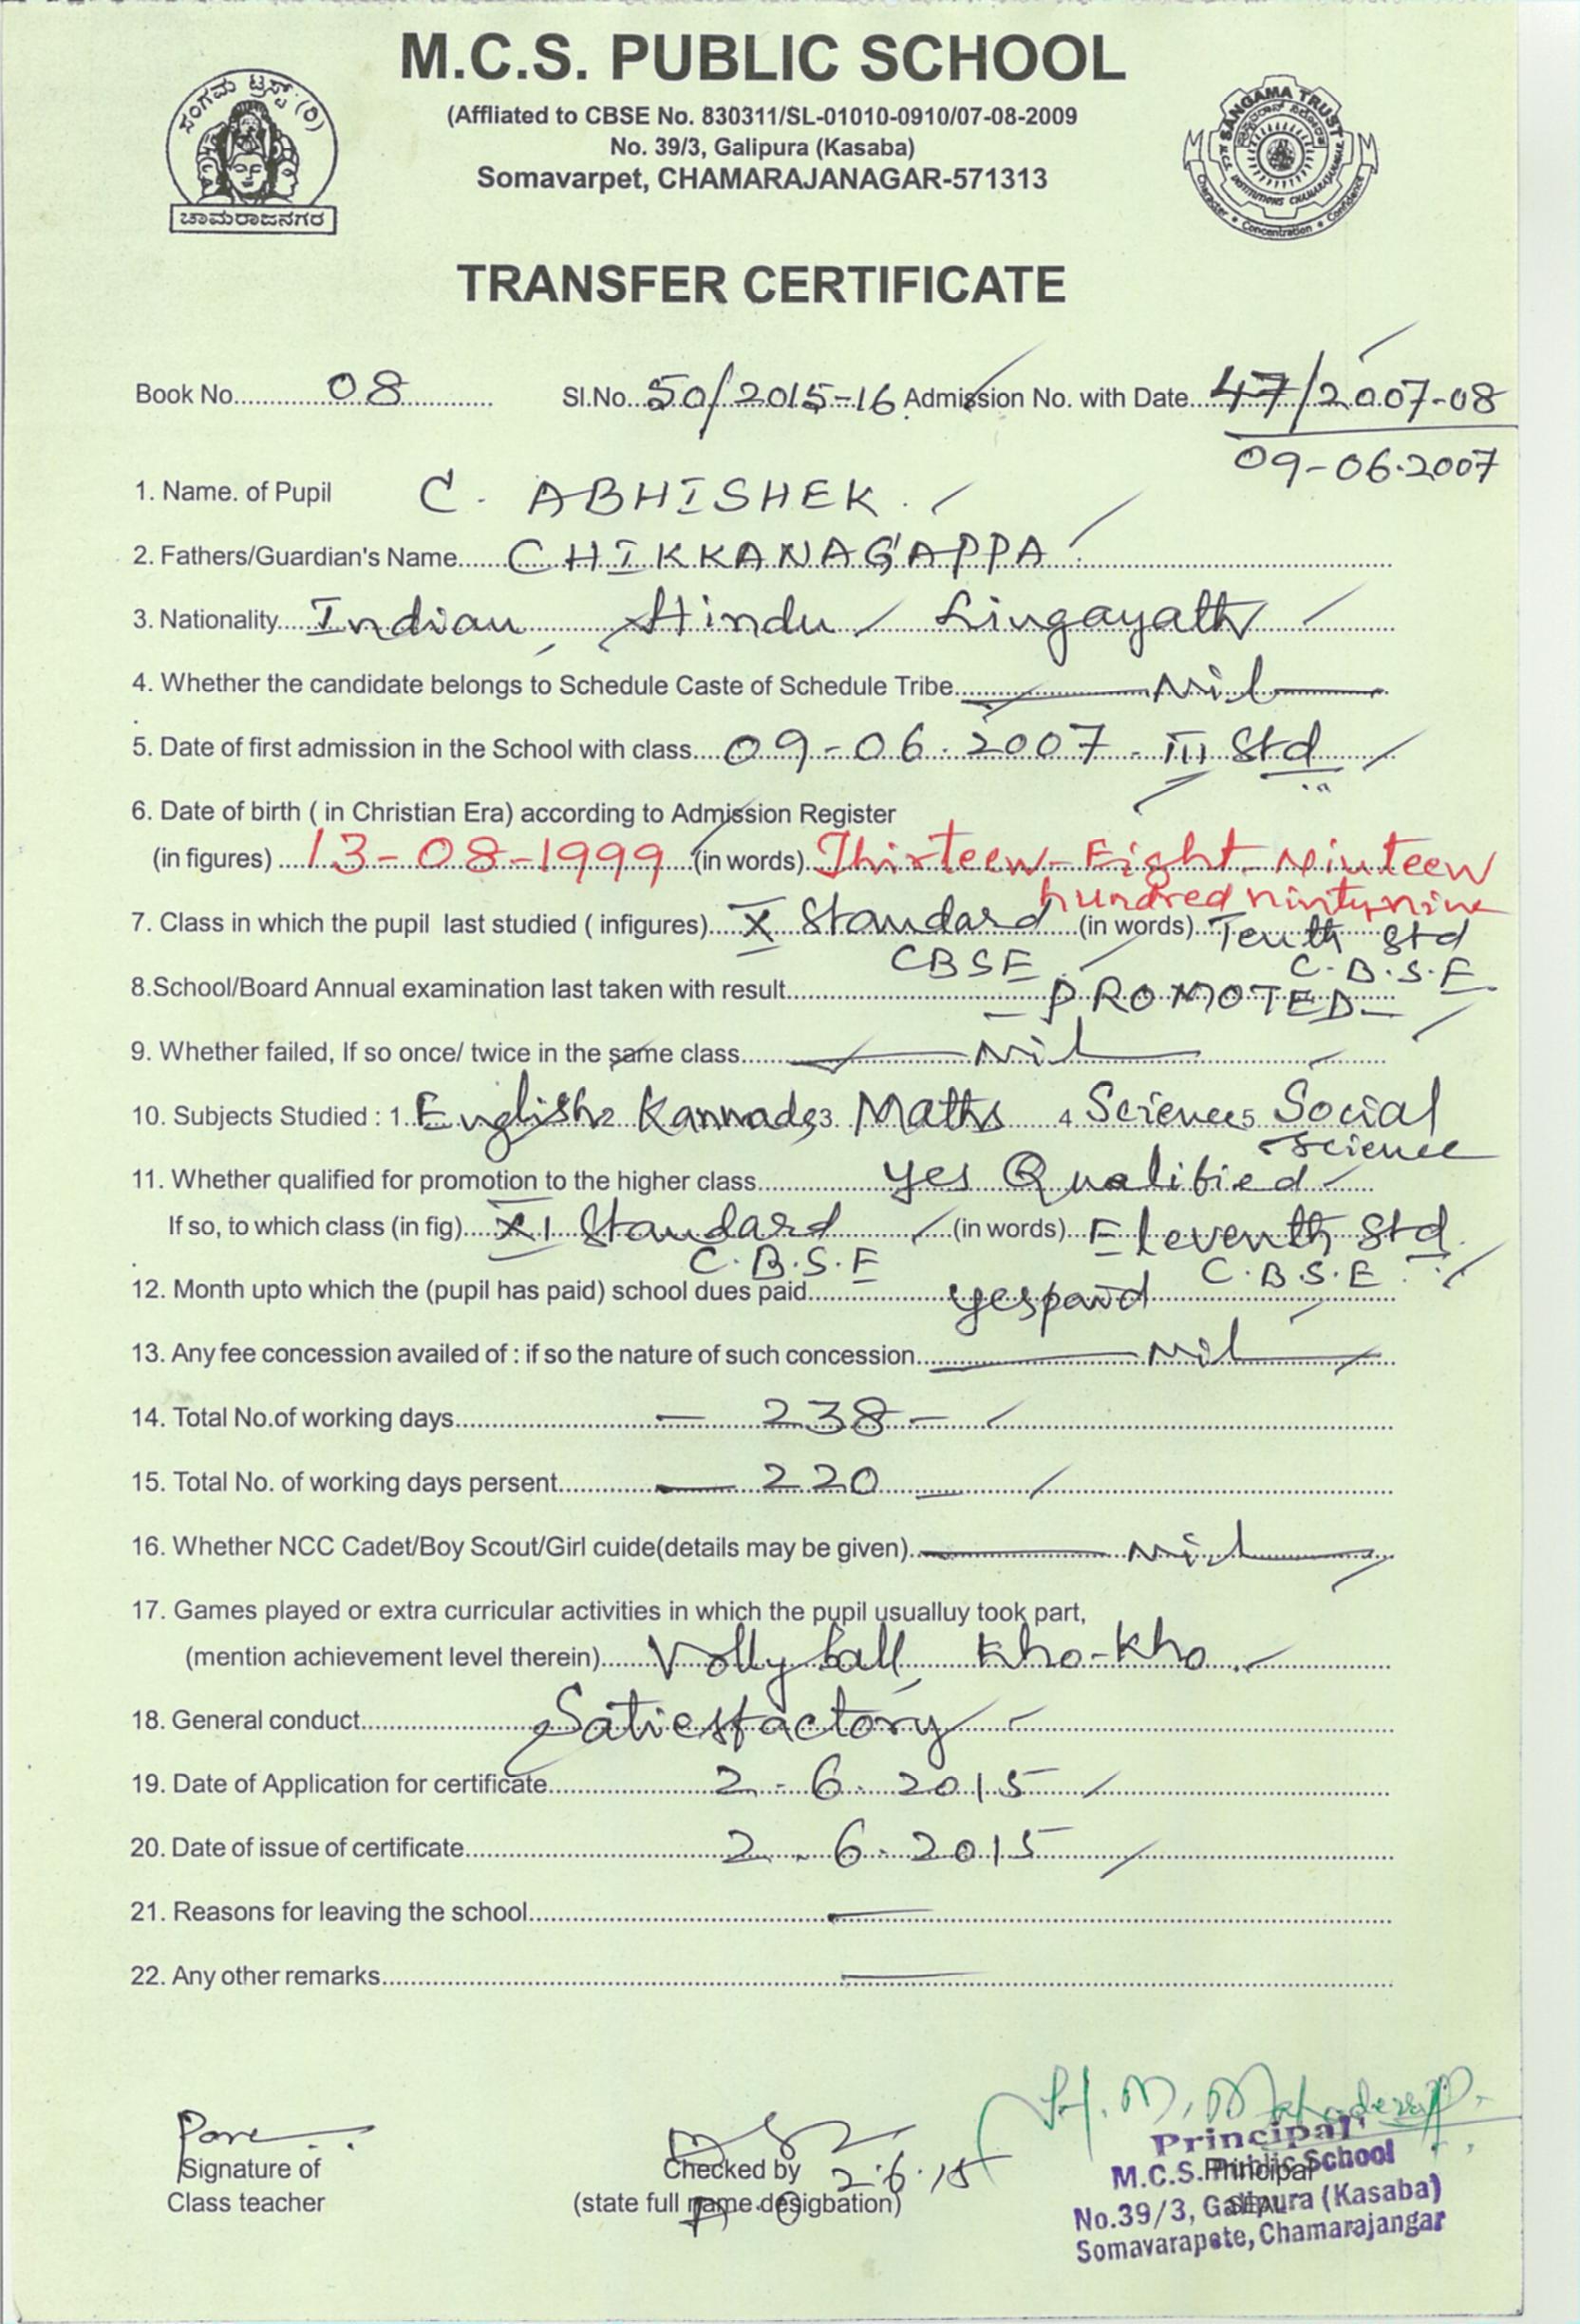 M.C.S. PUBLIC SCHOOL
ಸಂಗಮ ಟ್ರಸ್ಟ್ (ರಿ)
ಚಾಮರಾಜನಗರ
(Affliated to CBSE No. 830311/SL-01010-0910/07-08-2009
No. 39/3, Galipura (Kasaba)
Somavarpet, CHAMARAJANAGAR-571313
SANGAMA TRUST
M.C.S. INSTITUTIONS CHAMARAJANAGAR
Character • Concentration • Confidence
TRANSFER CERTIFICATE
Book No. 08 Sl.No. 50/2015-16 Admission No. with Date. 47/2007-08
09-06-2007
1. Name. of Pupil C. ABHISHEK.
2. Fathers/Guardian's Name CHIKKANAGAPPA.
3. Nationality Indian, Hindu / Lingayath
4. Whether the candidate belongs to Schedule Caste of Schedule Tribe Nil
5. Date of first admission in the School with class 09-06-2007 - III Std
6. Date of birth ( in Christian Era) according to Admission Register
(in figures) 13-08-1999 (in words) Thirteen-Eight-Ninteen
hundred ninty nine
7. Class in which the pupil last studied ( infigures) X Standard (in words) Tenth Std
CBSE C.B.S.E
8.School/Board Annual examination last taken with result - PROMOTED -
9. Whether failed, If so once/ twice in the same class Nil
10. Subjects Studied : 1. English 2. Kannada 3. Maths 4 Science 5 Social
Science
11. Whether qualified for promotion to the higher class yes Qualified
If so, to which class (in fig) XI Standard (in words) Eleventh Std.
C.B.S.E C.B.S.E.
12. Month upto which the (pupil has paid) school dues paid yes paid
13. Any fee concession availed of : if so the nature of such concession Nil
14. Total No.of working days - 238 -
15. Total No. of working days persent - 220 -
16. Whether NCC Cadet/Boy Scout/Girl cuide(details may be given) Nil
17. Games played or extra curricular activities in which the pupil usualluy took part,
(mention achievement level therein) Volly ball, Kho-Kho
18. General conduct Satiesfactory
19. Date of Application for certificate 2-6-2015
20. Date of issue of certificate 2.6.2015
21. Reasons for leaving the school —
22. Any other remarks —
Signature of
Class teacher
Checked by 2.6.15
(state full name desigbation)
Principal
M.C.S. Public School
Principal
SEAL
No.39/3, Galipura (Kasaba)
Somavarapete, Chamarajangar